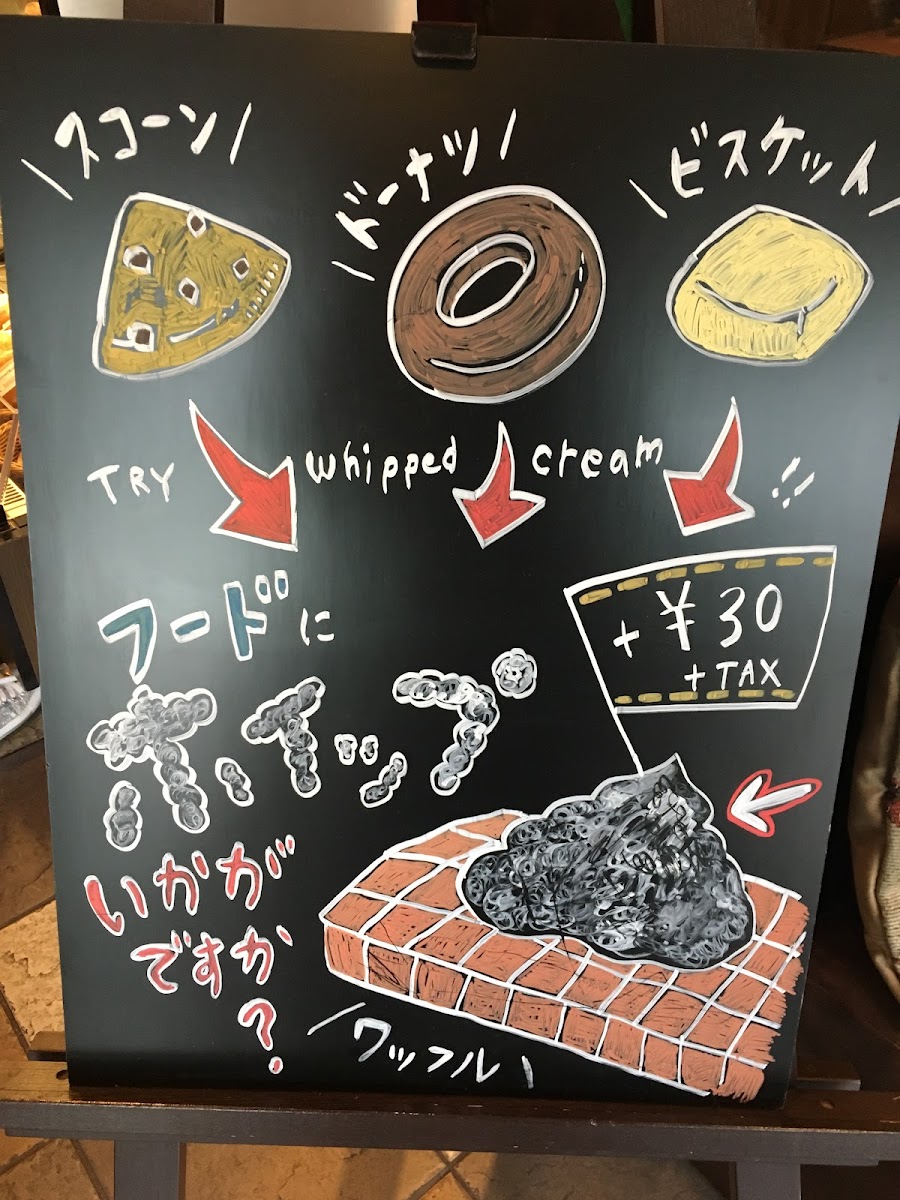 スコーン
ドーナツ
ビスケット
TRY whipped cream !!
フードに
ホイップ
いかが
ですか
?
+¥30
+TAX
ワッフル